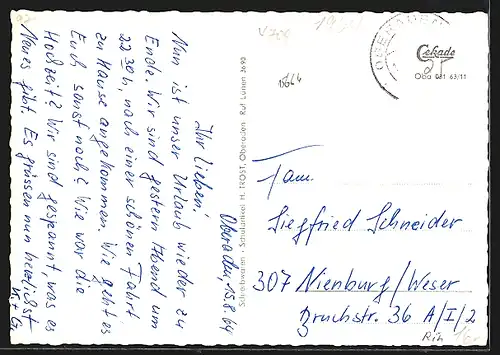 Oberaden, 15.8.64
Ihr Lieben!
Nun ist unser Urlaub wieder zu
Ende. Wir sind gestern Abend um
22 30 h, nach einer schönen Fahrt
zu Hause angekommen. Wie geht es
Euch sonst noch? Wie war die
Hochzeit? Wir sind gespannt, was es
Neues gibt. Es grüssen nun herzlichst
Schreibwaren - Schulartikel H. TROST, Oberaden Ruf Lünen 3692
OBERADEN
Cekade
Oba 081 63/11
Fam.
Siegfried Schneider
307 Nienburg/Weser
Bruchstr. 36 A/I/2